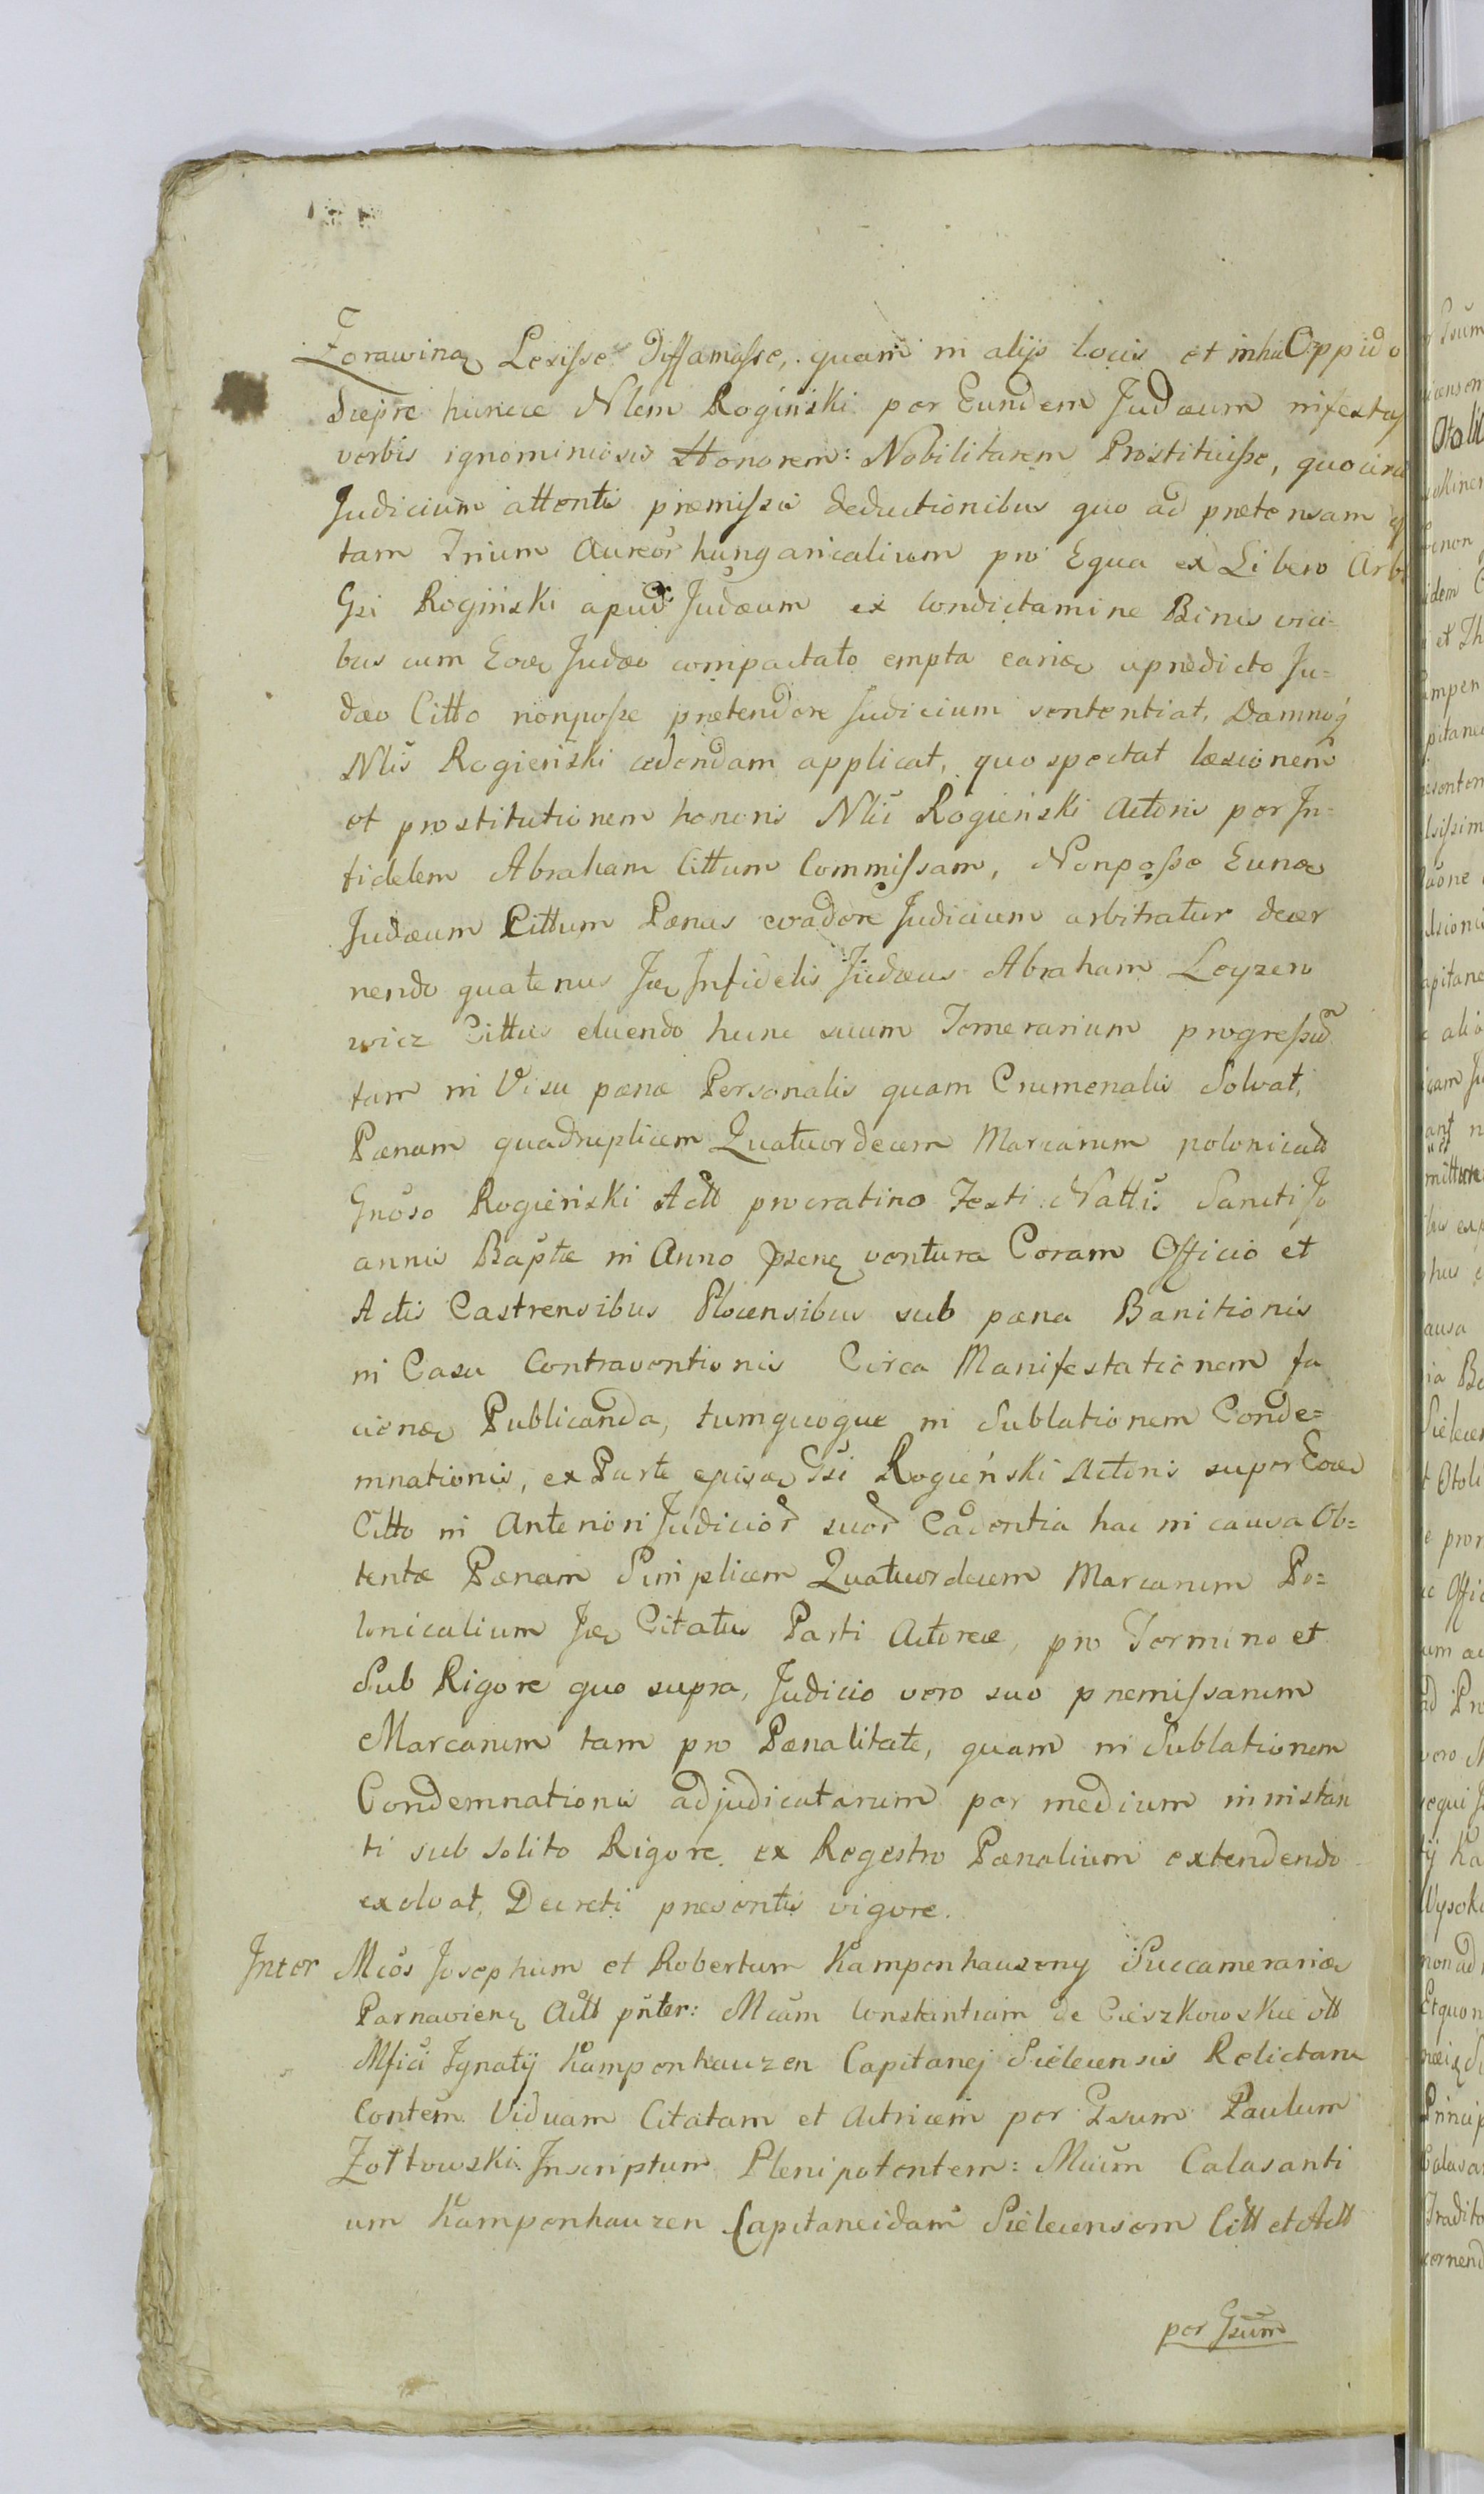 Zorawinæ Lesisse Diffamasse, quam in alijs locis et in hu Oppido
Sæpre huncce Nlem Rogiński per Eundem Judæum infestas
verbis ignominiosis Honorem: Nobilitarem Prostituisse, quocirca
Judicium attentis præmissis deductionibus quo ad prætensam
tam Trium Aureor hungaricalium pro Equa ex Libero Arbi
Gsi Rogiński apud Judæum ex Condictamine Binis vici-
bus cum Eoæ Judæo compactato empta a prædicto Ju=
dæo Citto nonposse prætendere Judicium sententiat, Damnoq
Nlis Rogieński cedendam applicat, quo spectat læsionem
et prostitutionem honoris Nlis Rogieński Actoris per In=
fidelem Abraham Cittum Commissam, Nonposse Eunæ
Judæum Cittum Pænas evadere Judicium arbitratur decer
nendo quatenus Jæ Infidelis Judæus Abraham Leyzero
wicz Cittus eluendo hunc suum Temerarium progressu
tam in Visu pænæ Personalis quam Crumenalis Solvat,
Pænam quadruplicem Quatuordecem Marcarum polonical
Gnoso Rogieński Actt procratino Festi Nattis Sancti Jo
annis Baptæ in Anno psenq ventura Coram Officio et
Actis Castrensibus Plocensibus sub pæna Banitionis
in Casu Contraventionis Circa Manifestationem fa
cienæ Publicanda, tumquoque in Sublationem Conde=
mnationis, ex Parte episæ Gsi Rogieński Actoris super Eoæ
Citto in Anteriori Judicior suor Cadentia hac in causa Ob=
tentæ Pænam Simplicem Quatuordecem Marcarum Po=
lonicalium Jæ Citatus Parti Actoreæ, pro Termino et
Sub Rigore quo supra, Judicio vero suo præmissarum
Marcarum tam pro Pænalitate, quam in Sublationem
Condemnationis adjudicatarum per medium in instan
ti sub solito Rigore ex Regestro Pænalium extendendo
exolvat, Decreti præsentis vigore.
Inter Mcos Josephum et Robertum Kampenhauzeny Succamerariæ
Parnavienq Actt pnter: Mcam Constantiam de Cieszkowskie ott
Mfici Ignatij Kampenhauzen Capitanej Sielecensis Relictam
Contem Viduam Citatam et Actricem per Gsum Paulum
Zołtowski Inscriptum Plenipotentem: Mcum Calasanti
um Kampenhauzen Capitaneidam Sielecensem Citt et Actt
per Gsum